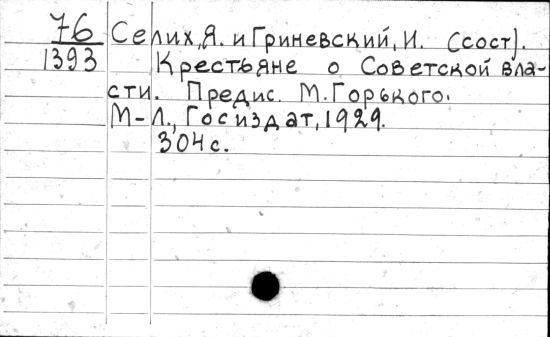 76 Селих,Я. и Гриневский, И. (сост).
1393 Крестьяне о Советской вла-
сти. Предис. М. Горького.
М-Л., Госиздат, 1929.
304 с.